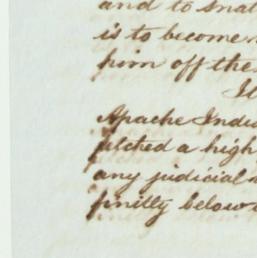 and to snat
is to become
him off the
It
Apache Indi
pitched a high
any judicial
finitly below